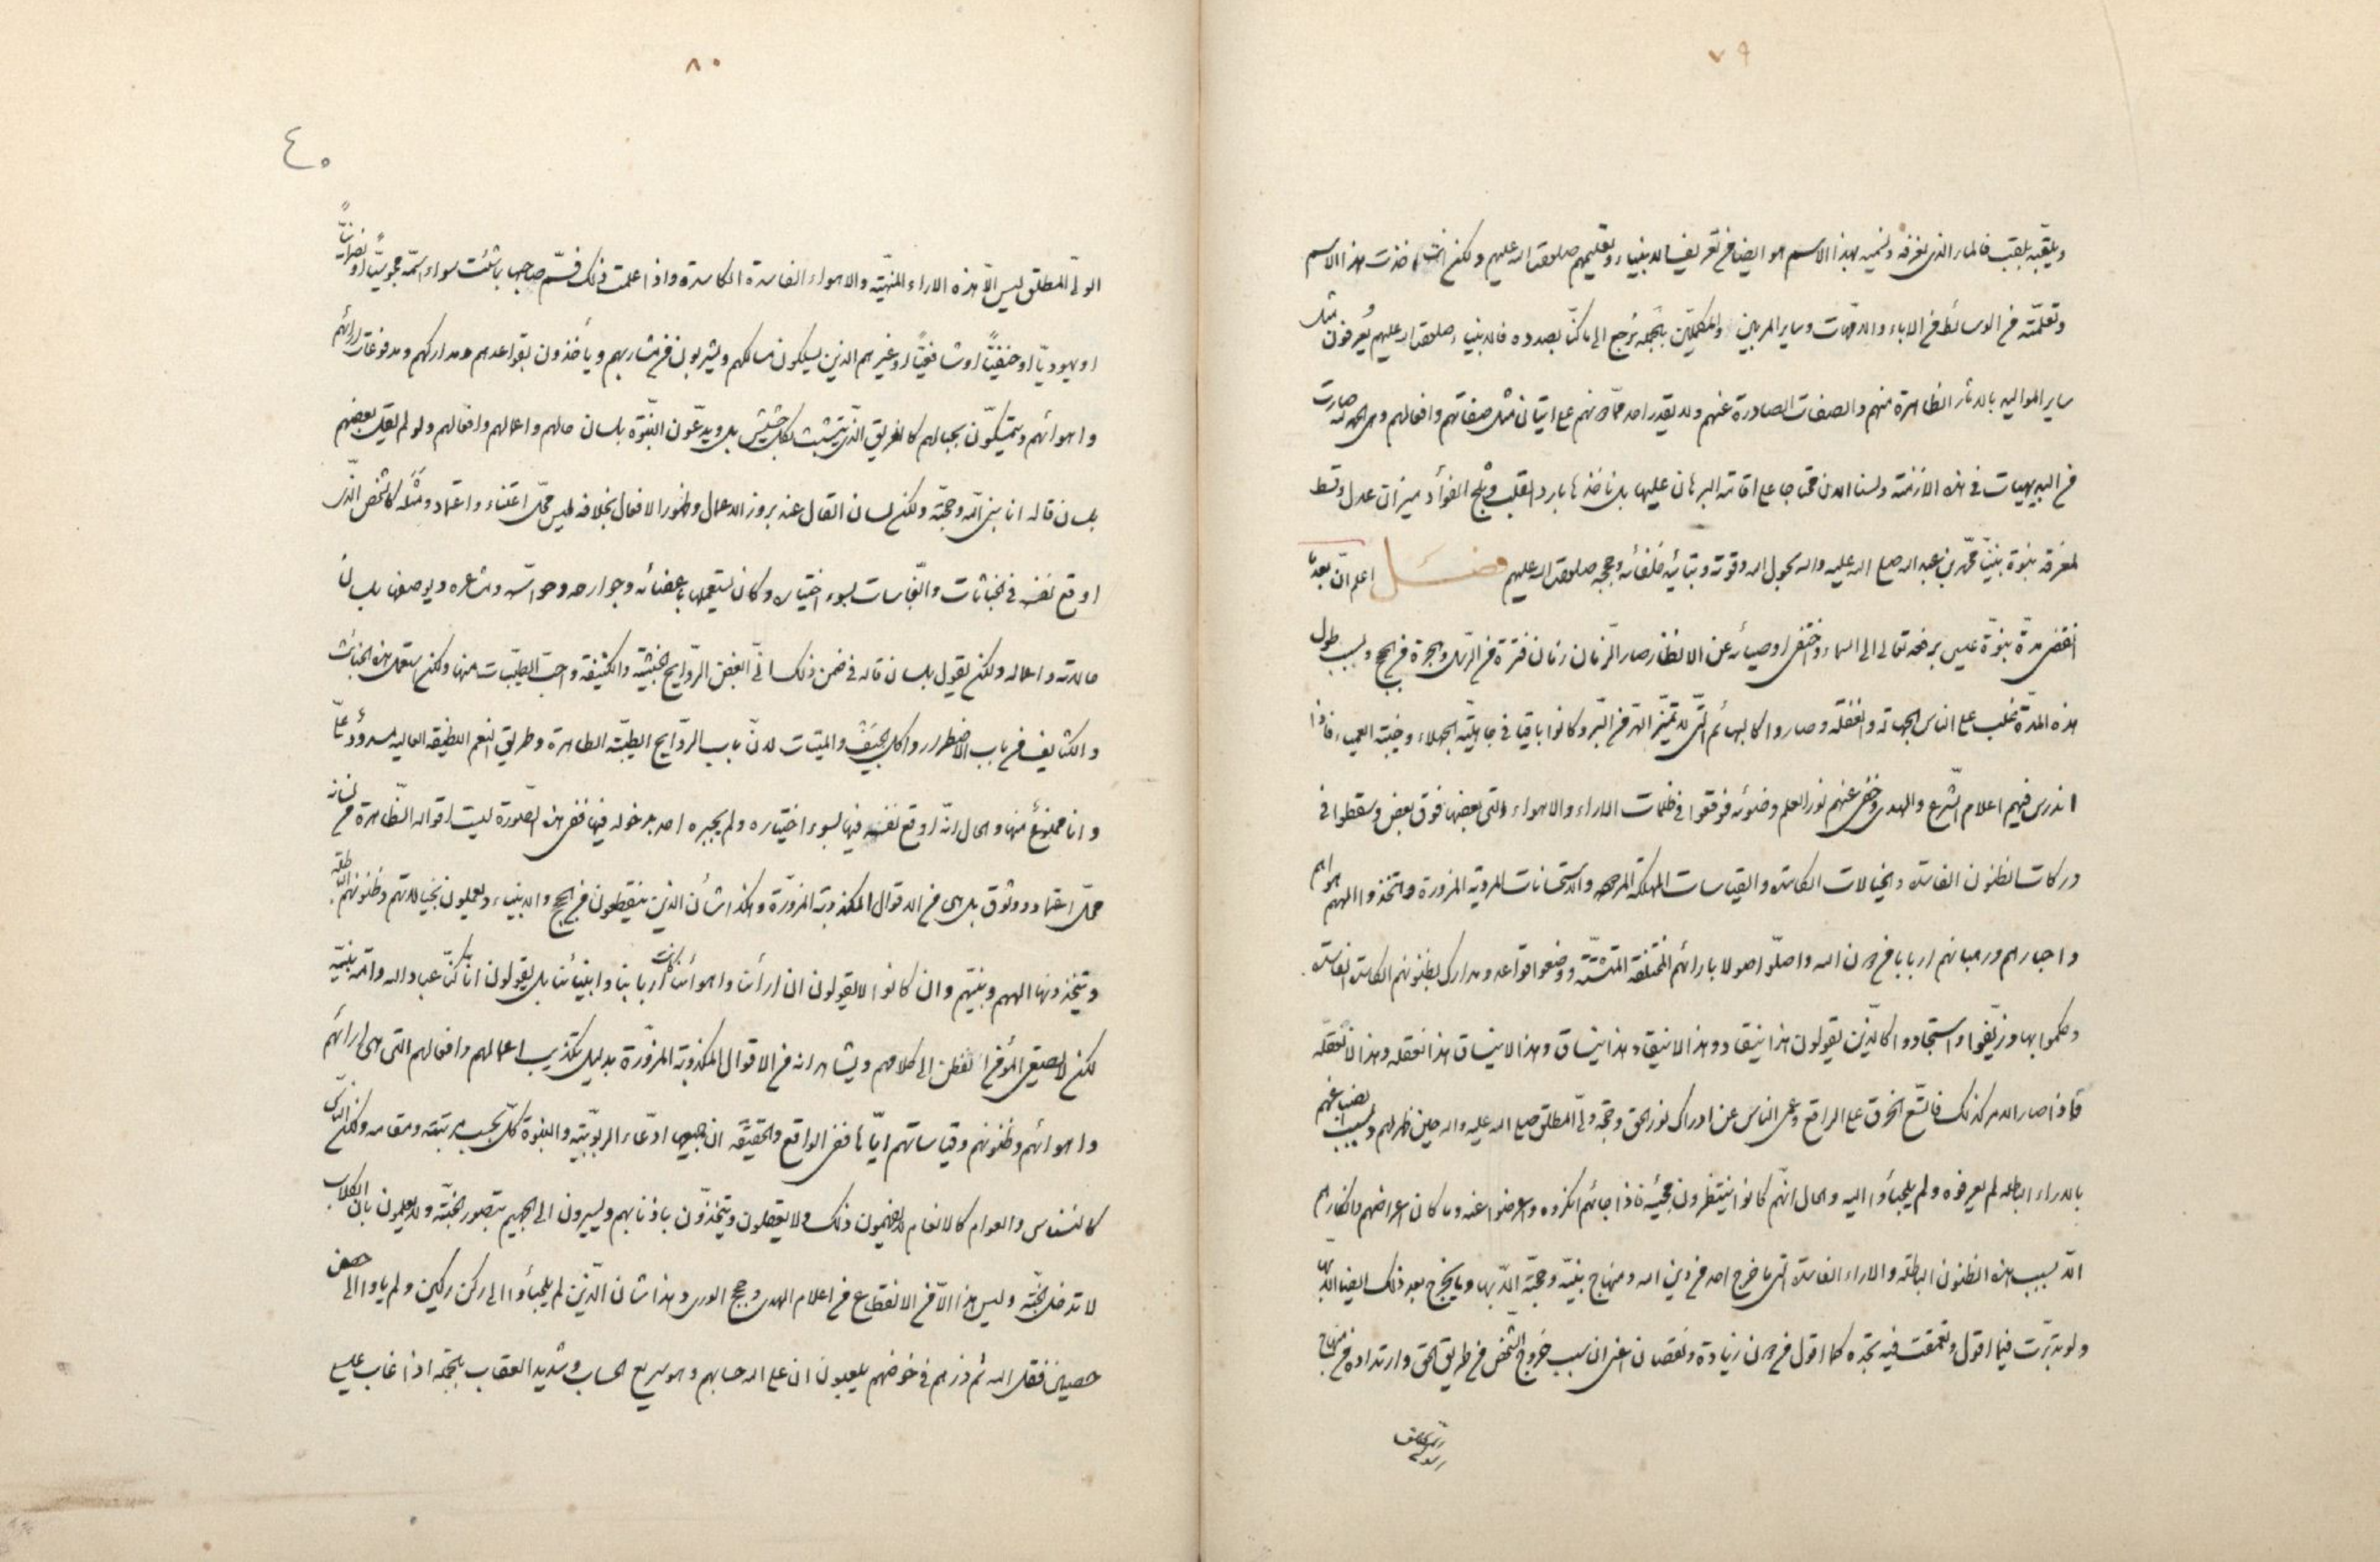 ٧٩
ويلقبه بلقب فالمار الذي نعرفه ونسميه بهذا الاسم هو ايضا في تعريف الانبياء وتعليمهم صلوات الله عليهم ولكن اخذت هذا الاسم
وتعلمته من الوسائط من الاباء والامهات وساير المربين والمكملين بالجملة نرجع الى ما كنا بصدده فالانبياء صلوات الله عليهم يعرفون مثل
ساير المواليد بالاثار الظاهرة منهم والصفات الصادرة عنهم ولا يقدر احد من على اتيان مثل صفاتهم وافعالهم وهى بحمد الله صارت
من البديهيات في هذه الازمنة ولسنا الان محتاجا على اقامة البرهان عليها بل ناخذها بارد القلب وثلج الفؤاد ميزان عدل وقسط
لمعرفة نبوة نبينا محمد بن عبد الله صلى الله عليه واله بحول الله وقوته وبتائيد خلفائه وحججه صلوات الله عليهم فصل اعلم ان بعد ما
انقضى مدة نبوة عيسى برفعه تعالى الى السماء واختفى اوصيائه عن الانظار صار الزمان زمان فترة من الرسل وهجرة من الحجج وبسبب طول
هذه المدة غلب على الناس الجهالة والغفلة وصاروا كالبهائم التى لا تميز الهر من البر وكانوا باقيا في جاهلية الجهلاء وخيبة العمياء فاذا
اندرس فيهم اعلام الشرع والهدى وخفى عنهم نور العلم وضوئه فوقعوا في ظلمات الاراء والاهواء التى بعضها فوق بعض وسقطوا في
دركات الظنون الفاسدة والخيالات الكاسدة والقياسات المهلكة والاستحسانات المردية المزورة واتخذوا الههم هواهم
واحبارهم ورهبانهم اربابا من دون الله واصلوا اصولا بارائهم المختلفة المتشتتة ووضعوا قواعد ومدارك بظنونهم الكاسدة الفاسدة
وحكموا بها وزيفوا واستجادوا كالذين يقولون هذا ينقاد وهذا لا ينقاد وهذا ينساق وهذا لا ينساق هذا نعقله وهذا لا نعقله
فاذا صار الامر كذلك فاتسع الخرق على الراقع وعمى الناس عن ادراك نور الحق وحجة ولى المطلق صلى الله عليه واله حين ظهر لهم وبسبب
بالاراء الباطلة لم يعرفوه ولم يلجأوا اليه والحال انهم كانوا ينتظرون مجيئه فاذا جائهم انكروه واعرضوا عنه وما كان اعراضهم وانكارهم
الا بسبب هذه الظنون الباطلة والاراء الفاسدة التى ما خرج احد من دين الله ومنهاج نبيه وحجته الا بها وما يخرج بعد ذلك ايضا الا بها
ولو تدبرت فيما اقول وتعمقت فيه تجده كما اقول من دون زيادة ونقصان اعنى ان سبب خروج الشخص من طريق الحق وارتداده من منهاج
الولى المطلق
٨٠
٤٠
الولى المطلق ليس الا هذه الاراء والاهواء الفاسدة الكاسدة واذا علمت ذلك فسم صاحبها باشئت سواء اسمه مجوسيا او نصرانيا
او يهوديا او حنفيا او شافعيا او غيرهم الذين يسلكون مسالكهم ويشربون من مشاربهم ويأخذون بقواعدهم ومداركهم ومدفوعات ارائهم
واهوائهم ويتمسكون بحبالهم كالغريق الذى يتشبث بكل حشيش بل ويدعون النبوة بلسان حالهم واعمالهم وافعالهم ولو لم يقل بعضهم
بلسان قاله انا نبى الله وحجته ولكن لسان القال عند بروز الاعمال وظهور الافعال بخلافه ليس محل اعتناء واعتماد ومثله كالشخص الذى
اوقع نفسه في الخباثات والنجاسات بسوء اختياره وكان يستعملها باعضائه وجوارحه وحواسه ومشاعره ويوصفها بلسان
حالاته واعماله ولكن يقول بلسان قاله في ضمن ذلك انى ابغض الروايح الخبيثة والكثيفة واحب الطيبات منها ولكن استعمل هذه الخبائث
والكثايف من باب الاضطرار واكل الجيف والميتات لان باب الروايح الطيبة الطاهرة وطريق النعم اللطيفة العالية مسدود على
وانا ممنوع منها والحال انه اوقع نفسه فيها بسوء اختياره ولم يجبره احد بدخوله فيها ففى هذه الصورة ليست اقواله الظاهرة من لسانه
محل اعتماد ووثوق بل هى من الاقوال المكذوبة المزورة وهكذا شأن الذين ينقطعون من الحجج والانبياء ويعملون بخيالاتهم وظنونهم الباطلة
ويتخذونها الههم ونبيهم وان كانوا لا يقولون ان ارائنا واهوائنا كانت اربابنا وانبيائنا بل يقولون انا كنا عباد الله وامة نبيه
لكن لا يصغى المؤمن الفطن الى كلامهم ويشاهد انه من الاقوال المكذوبة المزورة بدليل تكذيب اعمالهم وافعالهم التى هى ارائهم
واهوائهم وظنونهم وقياساتهم اياها ففى الواقع والحقيقة ان ادعاء الربوبية والنبوة كل بحسب مرتبته ومقامه ولكن الناس
كالنسناس والعوام كالانعام لا يفهمون ذلك ولا يعقلون ويتخذون باذنابهم ويسيرون الى الجحيم بتصور الجنة ولا يعلمون بان الكلاب
لا تدخل الجنة وليس هذا الا من الانقطاع من اعلام الهدى وحجج الورى وهذا شان الذين لم يلجأوا الى ركن ركين ولم ياووا الى حصن
حصين فقل الله ثم ذرهم في خوضهم يلعبون ان على الله حسابهم وهو سريع الحساب وشديد العقاب بالجملة اذا غاب عيسى